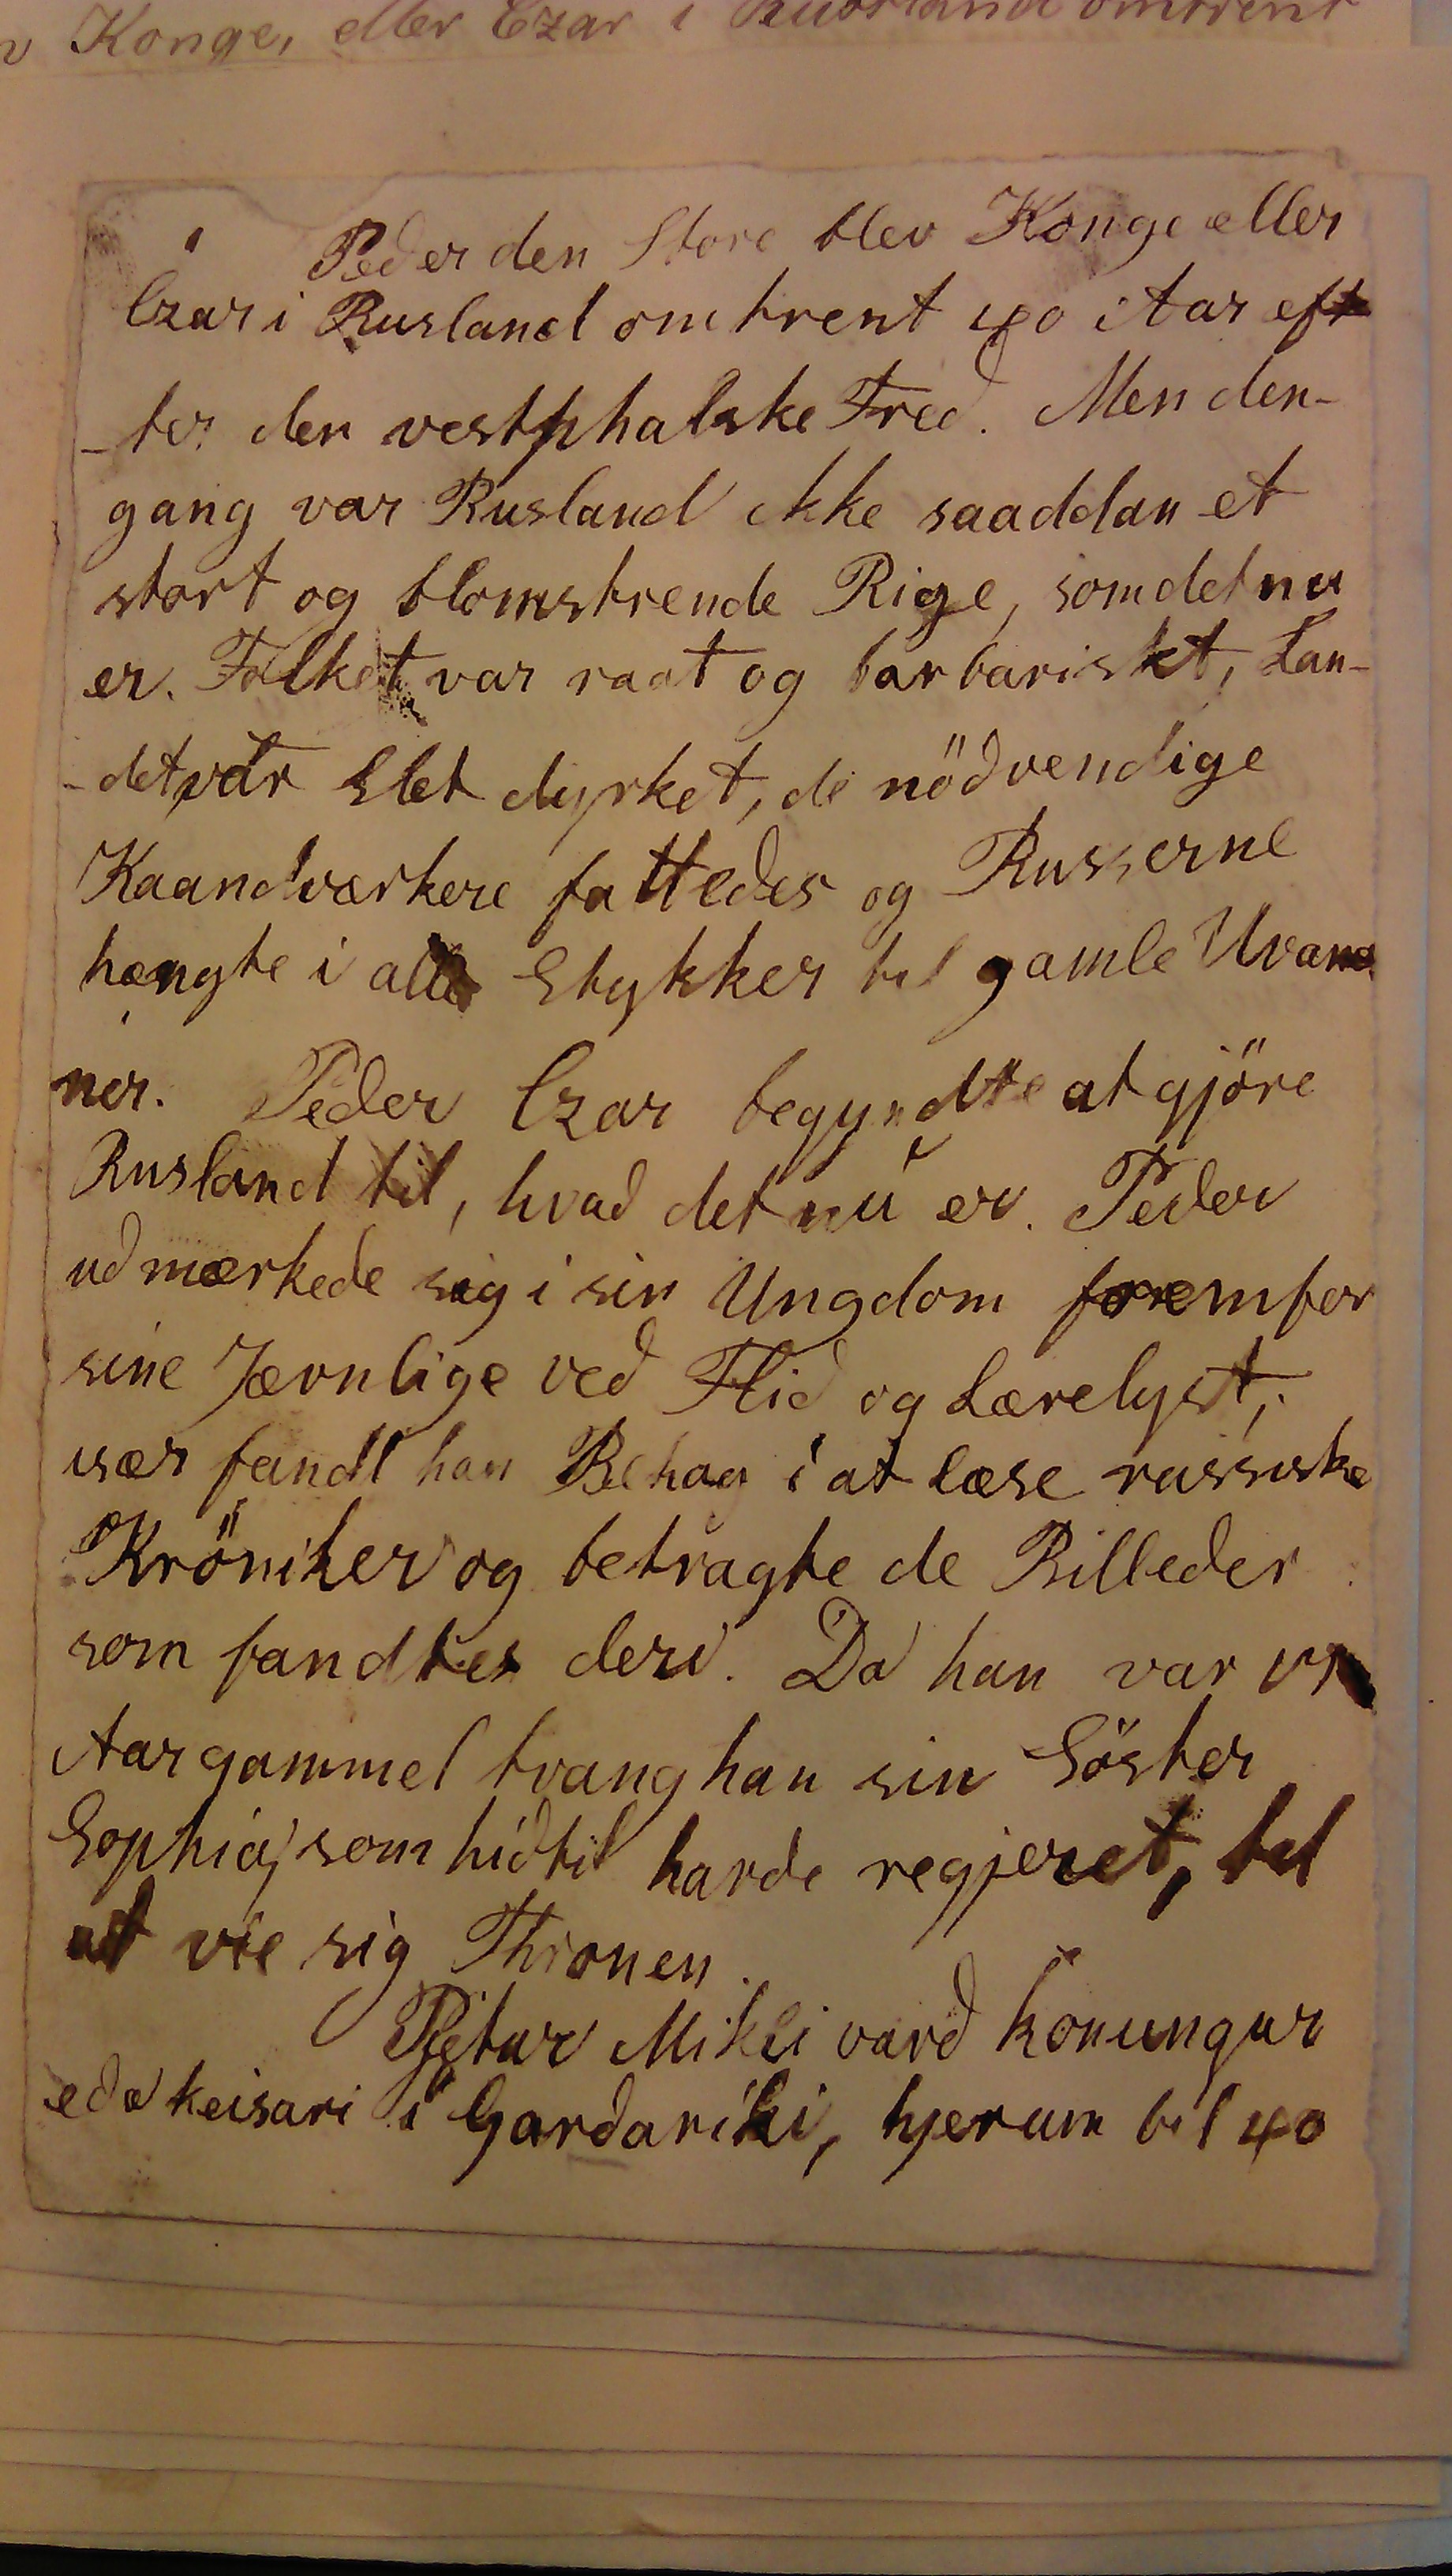 Konge, eller Czar i Rusrland omtrent
Peðer den Store blev Konge eller
Czar i Rusland omtrent 40 Aar ef
-ter den vestphalske Freð. Men den-
gang var Rusland ikke saaddan et
stort og blomstrende Rige, som det nu
er. Folket var raat og barbariskt, Lan-
-det var Slet dyrket, de nöðvendige
Haandværkere fattedes og Russerne
hængte i alle Stykker til gamle Uvana
ner. Peðer Czar begyndte at gjöre
Rusland til, hvað det nú er. Peðer
uðmærkeðe sig i sin Ungdom fremfor
sine Jævnlige veð Flið og Lærelyst,
især fandt han Behag i at læse russiske
Kröniker og betragte de Billeðer
som fandtes deri. Da han var 17
Aar gammel tvang han sin Söster
Sophia, som hiðtil havde regjeret, til
at vie sig Thronen.
Pjetur Mikli varð konungur
eða keisari í Garðaríki, hjerum bil 40